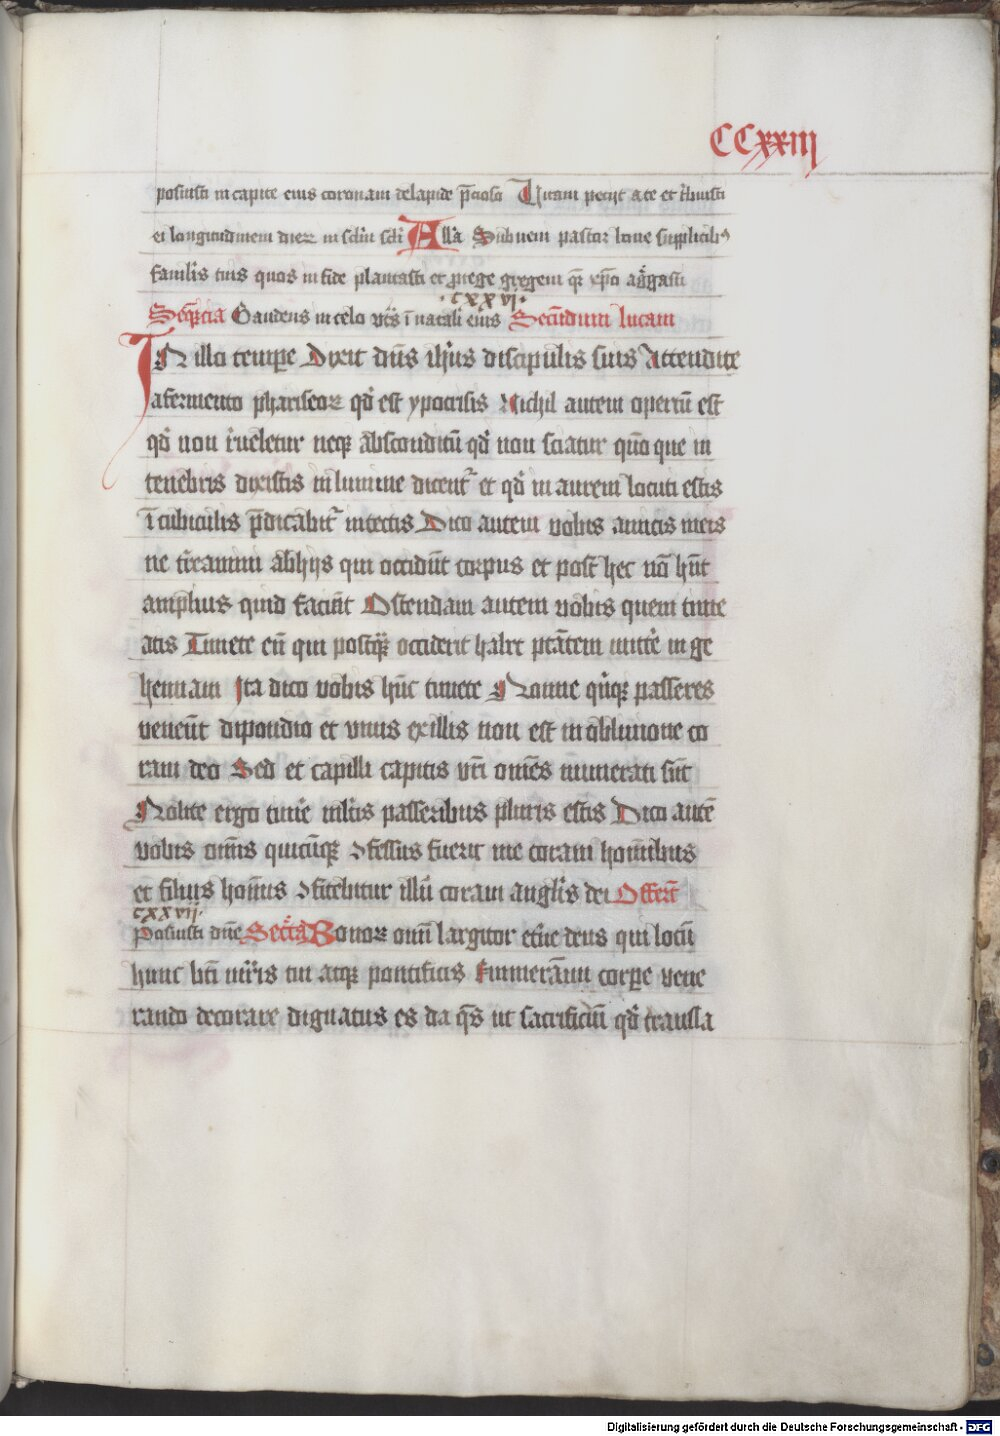 CCxxiij
posuisti in capite eius coronam de lapide p̄cioso Uitam peciit a te et t͛buisti
ei longitudinem dieꝝ in sc̄lm sc̄li All̓a Subueni pastor bone suplicib⁹
famil̓is tuis quos in fide plantasti et ꝓtege gregem
·cxxvi·
Seq̄ncia Gaudens in celo ī natali eius Secundum lucam
In illo tempe Dixit dn̄s ih̓us discipulis suis Attendite
a fermento phariseoꝝ qd̓ est ypocrisis Nichil autem opertū est
qd̓ non r̓ueletur neqꝫ absconditū qd̓ non sciatur qm̄ que in
tenebris dixistis in lumine dicent᷑ et qd̓ in aurem locuti estis
ī cubiculis p̄dicabit᷑ in tectis Dico autem vobis amicis meis
ne t̓reamini ab hijs qui occidūt corpus et post hec nō hn̄t
amplius quid faciāt Ostendam autem vobis quem time
atis Timete eū qui postqꝫ̄ occiderit habet ptātem mitt̓e in ge
hennam Ita dico vobis hūc timete Nonne q̓nqꝫ passeres
veneūt dipondio et vnus ex illis non est in obliuione co
ram deo Sed et capilli capitis vr̄i omēs numerati sūt
Nolite ergo tim̓e ml̓tis passeribus pluris estis Dico autē
vobis om̄is quicūqꝫ ꝯfessus fuerit me coram hom̄ibus
et filius hom̄is ꝯfitebitur illū coram angl̓is dei Offert̄
cxxvij·
Posuisti dn̄e Secr̄ta Bonoꝝ om̄i largitor et̓ne deus qui locū
hunc bt̄i mr̄is tui atqꝫ pontificis Emmerāmi corpe vene
rando decorare dignatus es da q̄s ut sacrificiū qd̓ transla
Digitalisierung gefördert durch die Deutsche Forschungsgemeinschaft - DFG